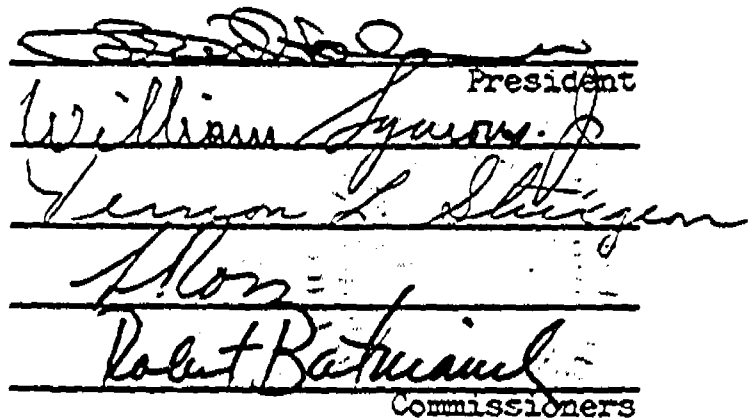 President
William Symons. Jr
Vernon L. Sturgeon
Robert Batinovich
Commissioners